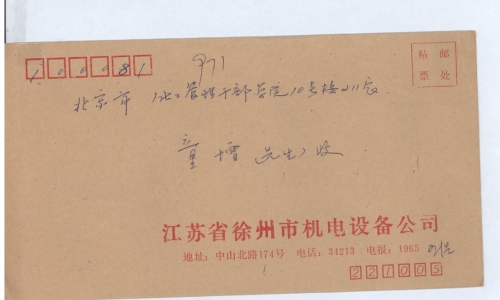 971
100081
贴邮
票处
北京市 化工管理干部学院10号楼211室
童增 先生 收
江苏省徐州市机电设备公司
地址:中山北路174号 电话:34213 电报:1985
221005